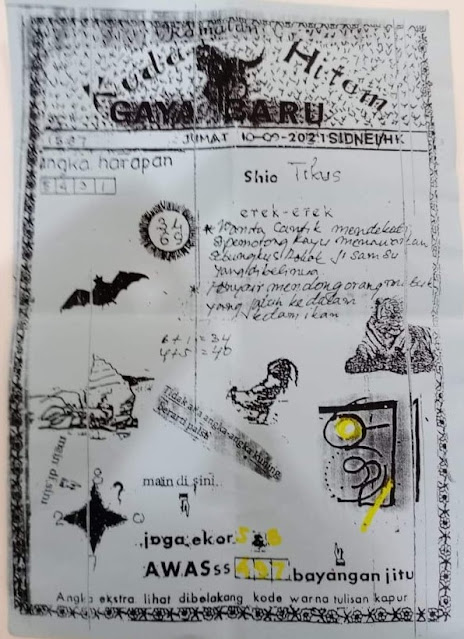 Ramalan
Kuda Hitam
GAYA BARU
JUMAT 10-09-2021 SIDNEI/HK
angka harapan
Shio Tikus
5 4 3 1
34
69
erek-erek
* Wanita Cantik mendekati
pemotong kayu menawarkan
sebungkus Rokok Ji sam su
yang dibelinya
* Penyair mendong orang
yang jatuh kedalam
kolam ikan
6+1=34
4+5=40
Tidak ada angka-angka kuning
berarti palsu
main di sini
main di sini
?
2 8
jaga ekor. 5 & 8
AWASss 457 bayangan jitu
Angka ekstra lihat dibelakang kode warna tulisan kapur